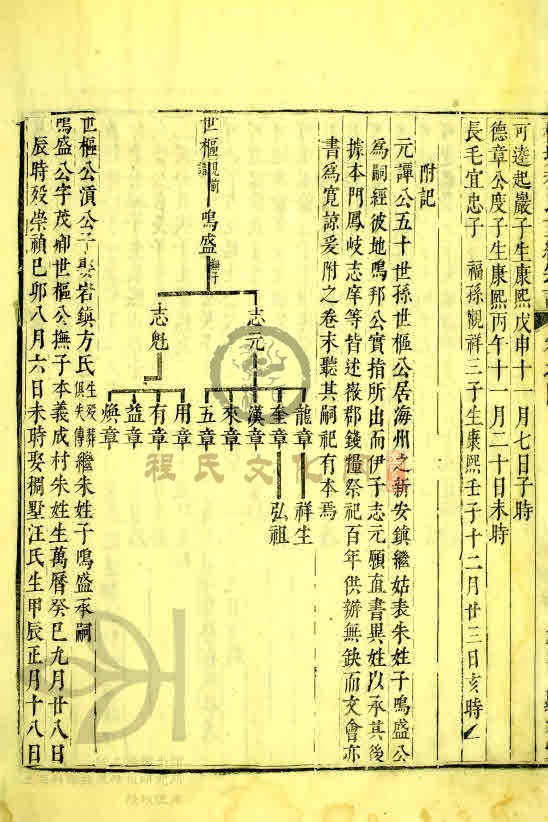 可達起巖子生康熙戊申十一月七日子時
德章公度子生康熙丙午十一月二十日未時
長毛宜忠子　福孫觀祥三子生康熙壬子十二月廿三日亥時
附記
元譚公五十世孫世樞公居海州之新安鎮繼姑表朱姓子鳴盛公
為嗣經彼地鳴邦公實指所出而伊子志元願直書異姓以承其後
據本門鳳岐志庠等皆述徽郡錢糧祭祀百年供辦無缺而文會亦
書為寬諒爰附之卷末聽其嗣祀有本焉
世樞 鳴盛 繼子
志元
志魁
龍章 奎章 漢章 來章 五章
用章 有章 益章 煥章
祥生
弘祖
世樞公演公子娶岩鎮方氏生歿葬俱失傳繼朱姓子鳴盛承嗣
鳴盛公字茂卿世樞公撫子本義成村朱姓生萬曆癸巳九月廿八日
辰時歿崇禎己卯八月六日未時娶稠墅汪氏生甲辰正月十八日
程氏文化